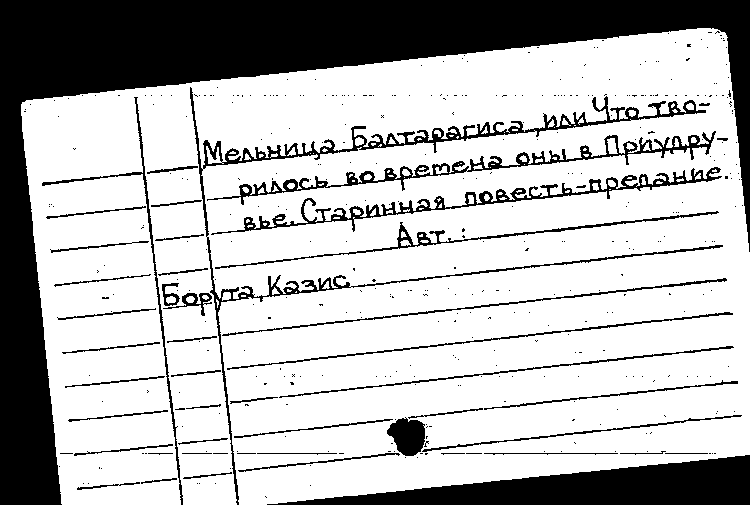 Мельница Балтарагиса, или Что тво-
рилось во времена оны в Приудру-
вье. Старинная повесть-предание.
Авт.:
Борута, Казис.